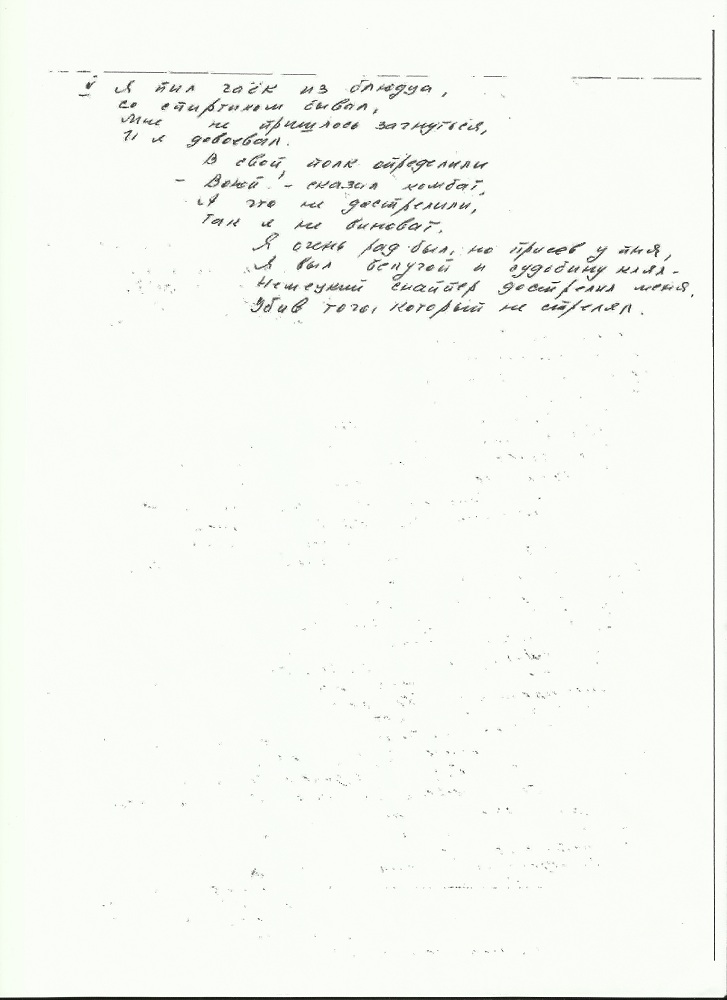 V Я пил чаёк из блюдца,
со спиртиком бывал,
Мне не пришлось загнуться,
И я довоевал.
В свой полк определили
- Воюй! - сказал комбат,
А что не дострелили,
Так я не виноват.
Я очень рад был, но присев у пня,
Я выл белугой и судьбину клял -
Немецкий снайпер дострелил меня,
Убив того, который не стрелял.